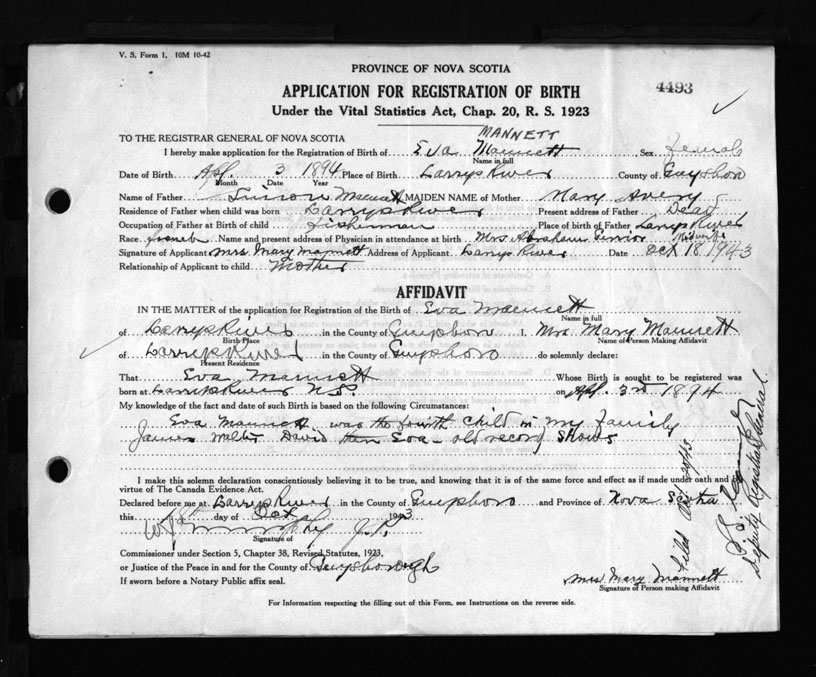 V. S. Form 1. 10M 10-42
PROVINCE OF NOVA SCOTIA
4493
APPLICATION FOR REGISTRATION OF BIRTH
Under the Vital Statistics Act, Chap. 20, R. S. 1923
TO THE REGISTRAR GENERAL OF NOVA SCOTIA
MANNETT
I hereby make application for the Registration of Birth of Eva Mannett Sex female
Name in full
Date of Birth Apl. 3 1894 Place of Birth Larrys River County of Guysboro
Month Date Year
Name of Father Simon Mannett MAIDEN NAME of Mother Mary Avery
Residence of Father when child was born Larrys River Present address of Father Dead
Occupation of Father at Birth of child fisherman Place of birth of Father Larrys River
Race french Name and present address of Physician in attendance at birth Mrs. Abraham Midwife
Signature of Applicant Mrs. Mary Mannett Address of Applicant Larrys River Date Oct 18 1943
Relationship of Applicant to child Mother
AFFIDAVIT
IN THE MATTER of the application for Registration of the Birth of Eva Mannett
Name in full
of Larrys River in the County of Guysboro I, Mrs. Mary Mannett
Birth Place Name of Person Making Affidavit
of Larrys River in the County of Guysboro do solemnly declare:
Present Residence
That Eva Mannett Whose Birth is sought to be registered was
born at Larrys River N.S. on Apl. 3rd 1894
My knowledge of the fact and date of such Birth is based on the following Circumstances:
Eva Mannett was the fourth child in my family
James Walter David then Eva - old record shows
I make this solemn declaration conscientiously believing it to be true, and knowing that it is of the same force and effect as if made under oath and by
virtue of The Canada Evidence Act.
Declared before me at Larrys River in the County of Guysboro and Province of Nova Scotia
this day of Oct 1943
Murphy J.P.
Signature of
Commissioner under Section 5, Chapter 38, Revised Statutes, 1923,
or Justice of the Peace in and for the County of Guysborough
If sworn before a Notary Public affix seal.
Mrs. Mary Mannett
Signature of Person making Affidavit
For Information respecting the filling out of this Form, see Instructions on the reverse side.
Filed
Deputy Registrar General.